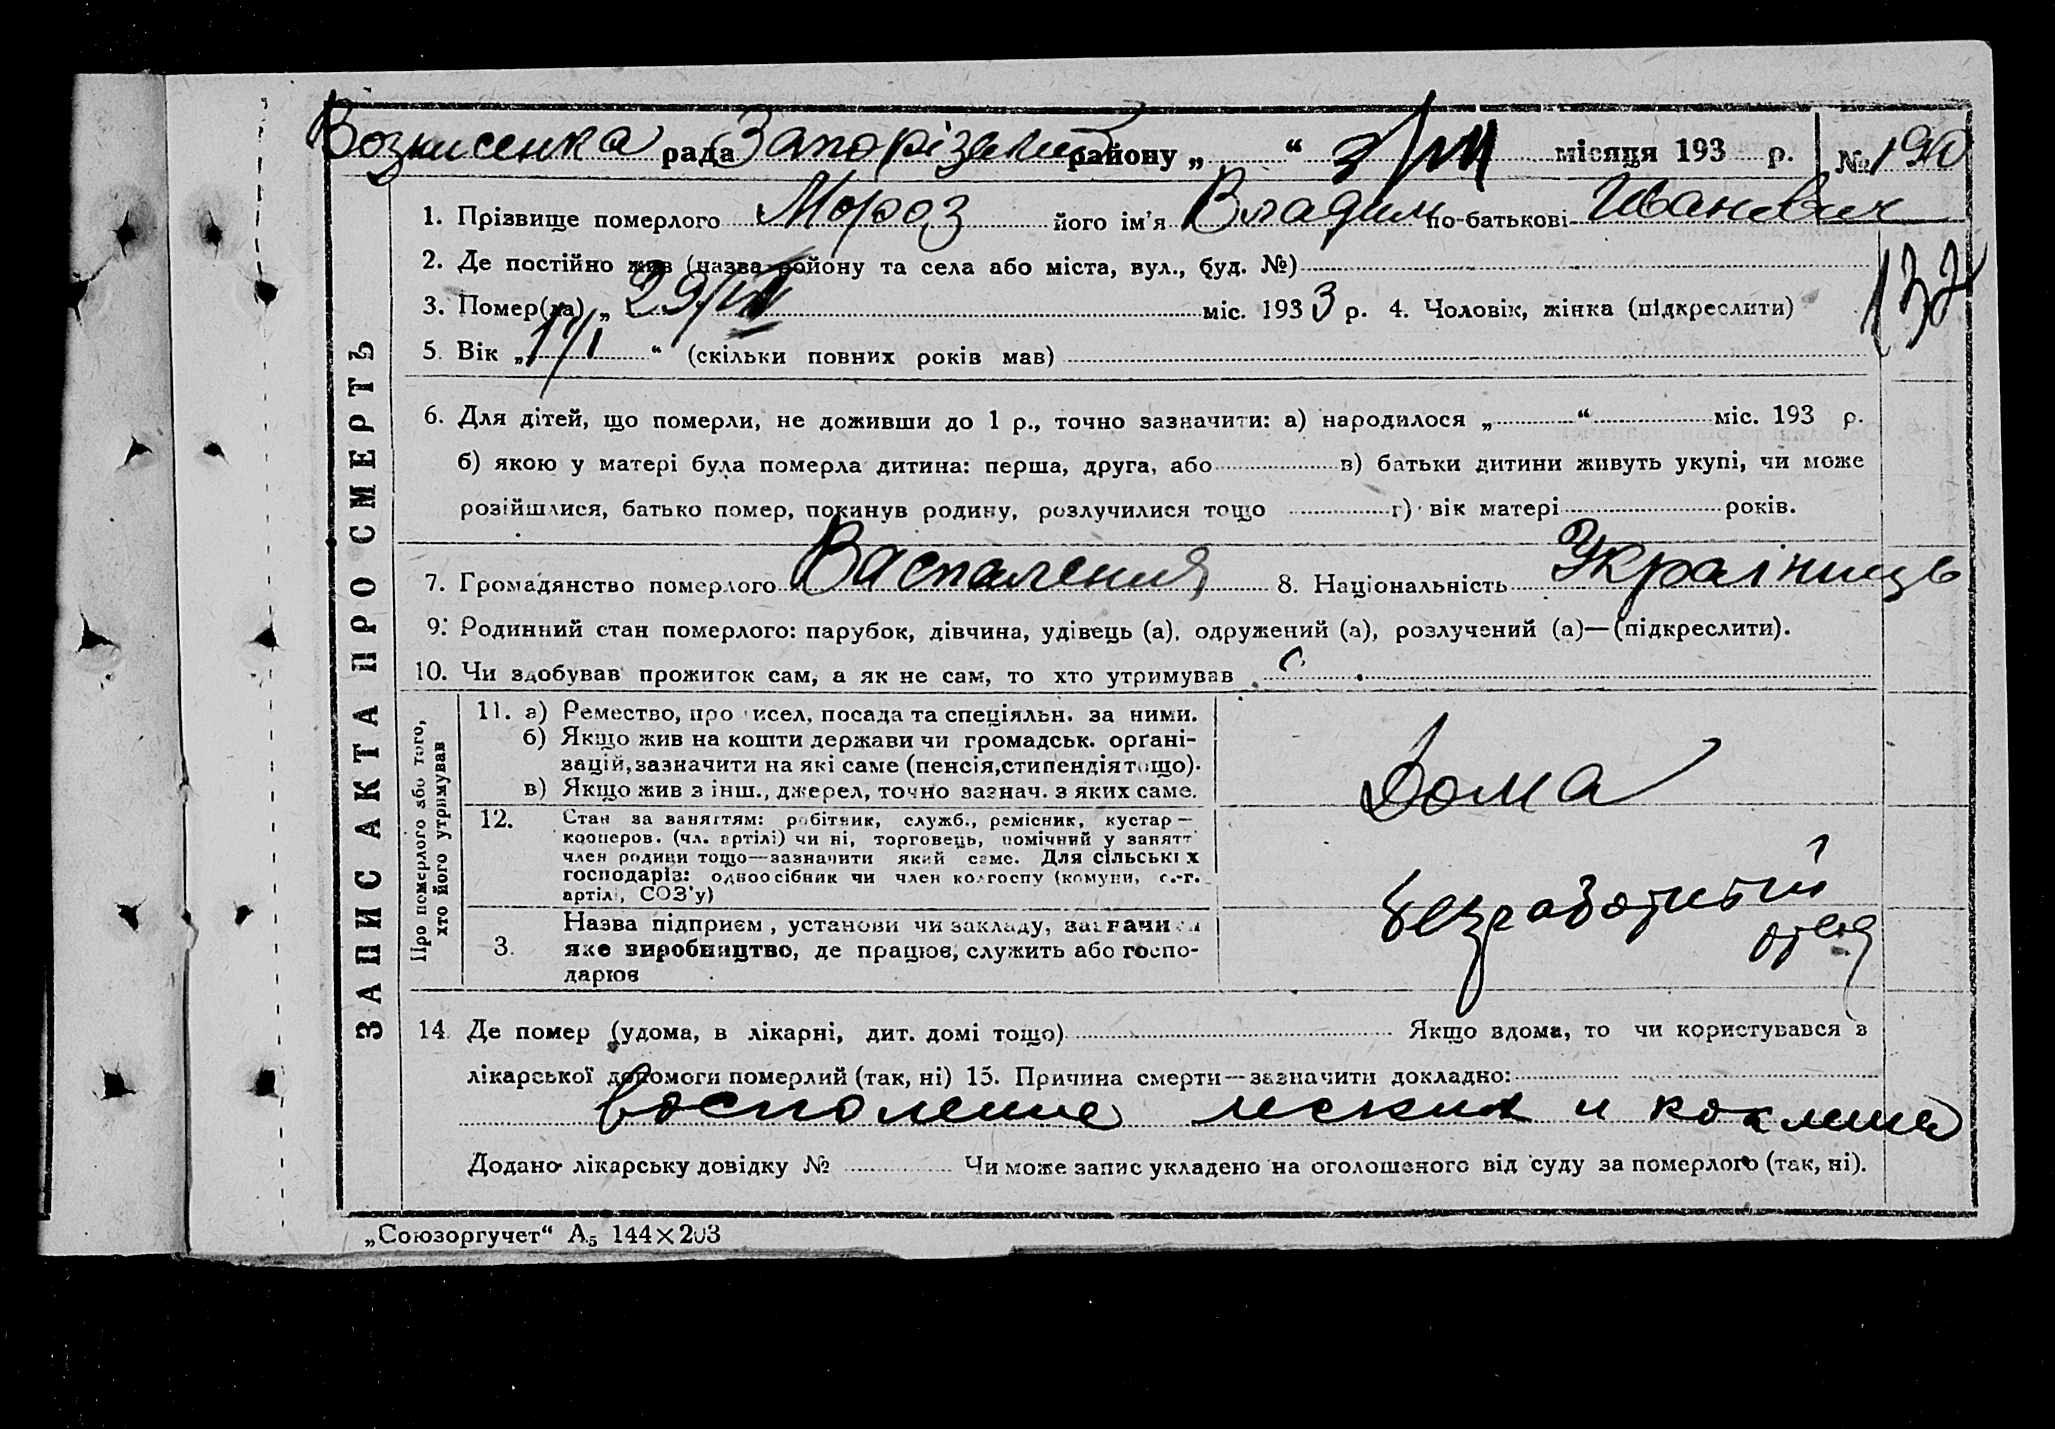 Вознисенка рада Запорізький району „ “ 3/VII місяця 193 р. № 190
1. Прізвище померлого Мороз його ім'я Владим по-батькові Иванович
2. Де постійно жив (назва району та села або міста, вул., буд. №)
132
3. Помер(ла) „ 29/VI міс. 1933 р. 4. Чоловік, жінка (підкреслити)
5. Вік „ “ (скільки повних років мав)
6. Для дітей, що померли, не доживши до 1 р., точно зазначити: а) народилося „ “ міс. 193 р.
б) якою у матері була померла дитина: перша, друга, або в) батьки дитини живуть укупі, чи може
розійшлися, батько помер, покинув родину, розлучилися тощо г) вік матері років.
7. Громадянство померлого Васпаления 8. Національність Украіниць
9. Родинний стан померлого: парубок, дівчина, удівець (а), одружений (а), розлучений (а)—(підкреслити).
10. Чи здобував прожиток сам, а як не сам, то хто утримував
ЗАПИС АКТА ПРО СМЕРТЬ
Про померлого або того,
хто його утримував
11. а) Ремество, про исел, посада та спеціяльн. за ними.
б) Якщо жив на кошти держави чи громадськ. органі-
зацій, зазначити на які саме (пенсія, стипендія тощо).
в) Якщо жив з інш., джерел, точно зазнач. з яких саме.
Дома
12. Стан за заняттям: робітник, служб., ремісник, кустар—
кооперов. (чл. артілі) чи ні, торговець, помічний у занятт
член родини тощо—зазначити який саме. Для сільськ х
господарів: одноосібник чи член колгоспу (комуни, с.-г.
артілі, СОЗ'у)
безработний
отец
3. Назва підприєм , установи чи закладу, зазначи и
яке виробництво, де працює, служить або госпо-
дарює
14. Де помер (удома, в лікарні, дит. домі тощо) Якщо вдома, то чи користувався з
лікарської допомоги померлий (так, ні) 15. Причина смерти—зазначити докладно:
восполение леских и коклюш
Додано лікарську довідку № Чи може запис укладено на оголошеного від суду за померлого (так, ні).
„Союзоргучет“ А5 144×203